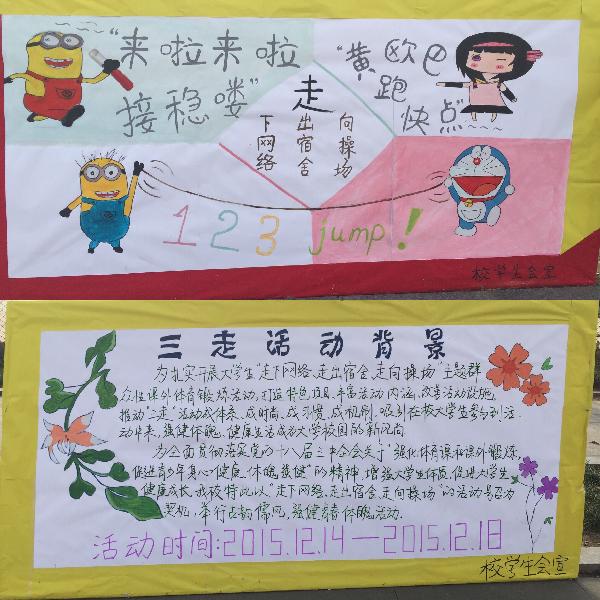 "来啦来啦
接稳喽"
"黄欧巴
跑
快点"
走
下网络
出宿舍
向操场
1 2 3 jump!
校学生会宣
三走活动背景
为扎实开展大学生"走下网络、走出宿舍、走向操场"主题群
众性课外体育锻炼活动,打造特色项目,丰富活动内涵,改善活动设施,
推动"三走"活动成体系、成时尚、成习惯、成机制,吸引在校大学生参与到活
动中来,强健体魄、健康生活成为大学校园的新风尚.
为全面贯彻落实党的十八届三中全会关于"强化体育课和课外锻炼,
促进青少年身心健康、体魄强健"的精神,增强大学生体质,促进大学生
健康成长,我校特此以"走下网络、走出宿舍、走向操场"的活动号召为
契机,举行
活动时间:2015.12.14—2015.12.18
校学生会宣